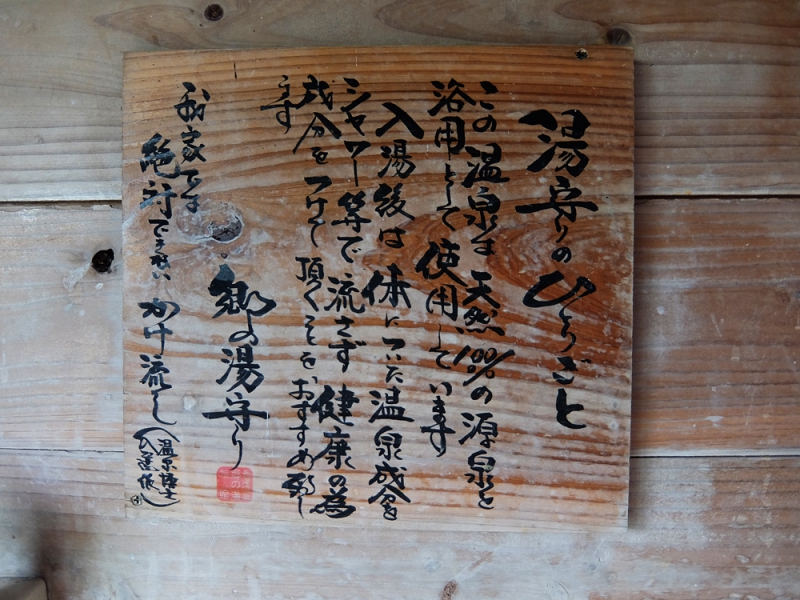 湯守りのひとりごと
この温泉は天然100%の源泉を
浴用として使用しています
入湯後は体についた温泉成分を
シャワー等で流さず健康の為
成分をつけて頂くことをおすすめ致し
ます
郷の湯守り
我家では
絶対できないかけ流し
温泉博士
入選作